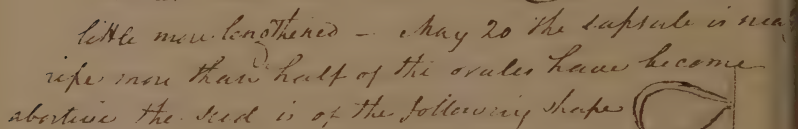 little more lengthened - May 20 the capsule is nea
ripe more than half of the ovules have become
abortive the seed is of the following shape